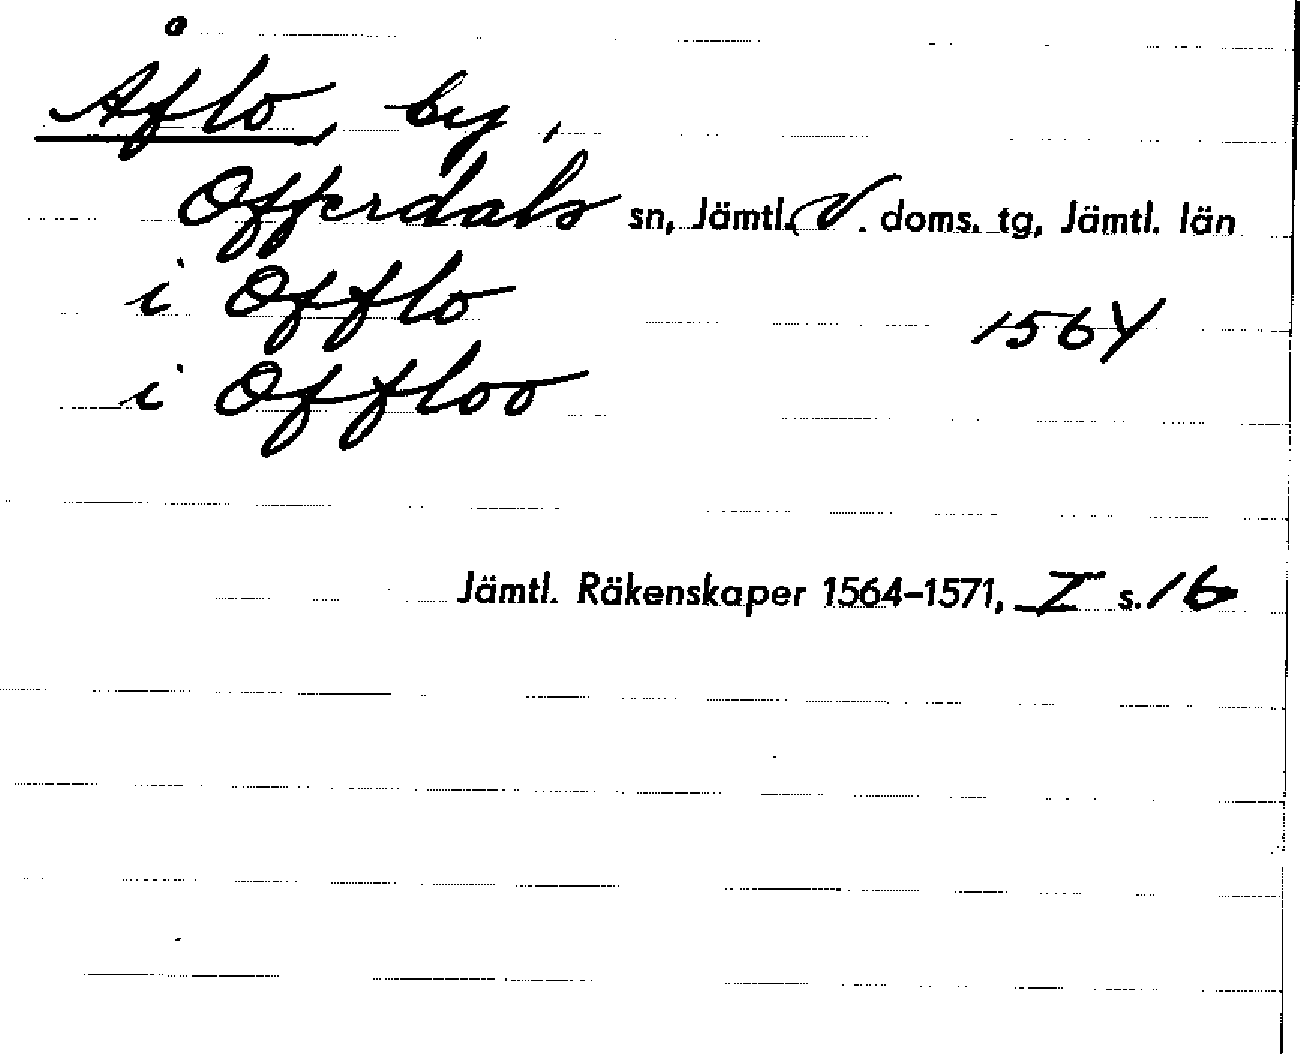 Åflo, by,
Offerdals sn, Jämtl. V. doms. tg, Jämtl. län
i Offlo 1564
i Offloo
Jämtl. Räkenskaper 1564-1571, I s. 16